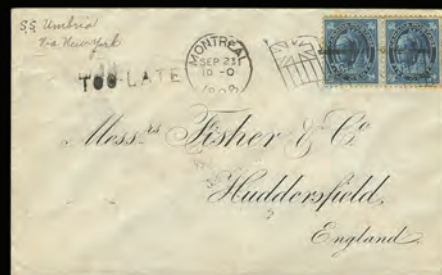 S.S. Umbria
Via New York
TOO LATE
MONTREAL
SEP 23
10 - 0
1898
Mess.rs Fisher & Co
Huddersfield,
England.